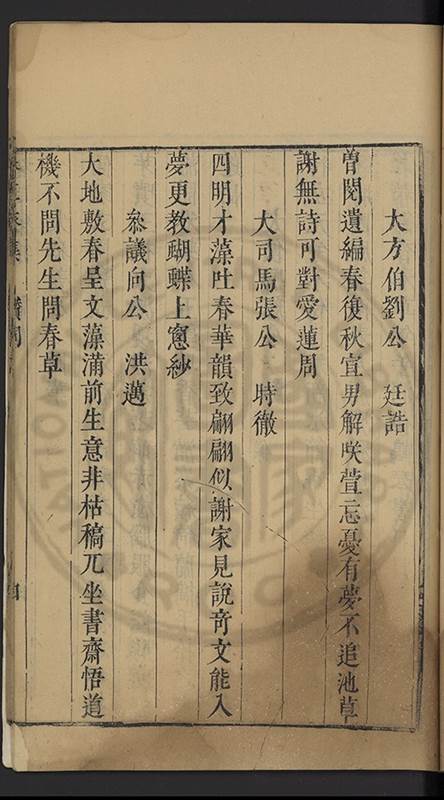 大方伯劉公　廷誥
曽閱遺編春復秋宜男解咲萱忘憂有夢不追池草
謝無詩可對愛蓮周
大司馬張公　時徹
四明才藻吐春華韻致翩翩似謝家見說竒文能入
夢更教蝴蝶上窻紗
叅議向公　洪邁
大地敷春呈文藻滿前生意非枯稿兀坐書齋悟道
機不問先生問春草